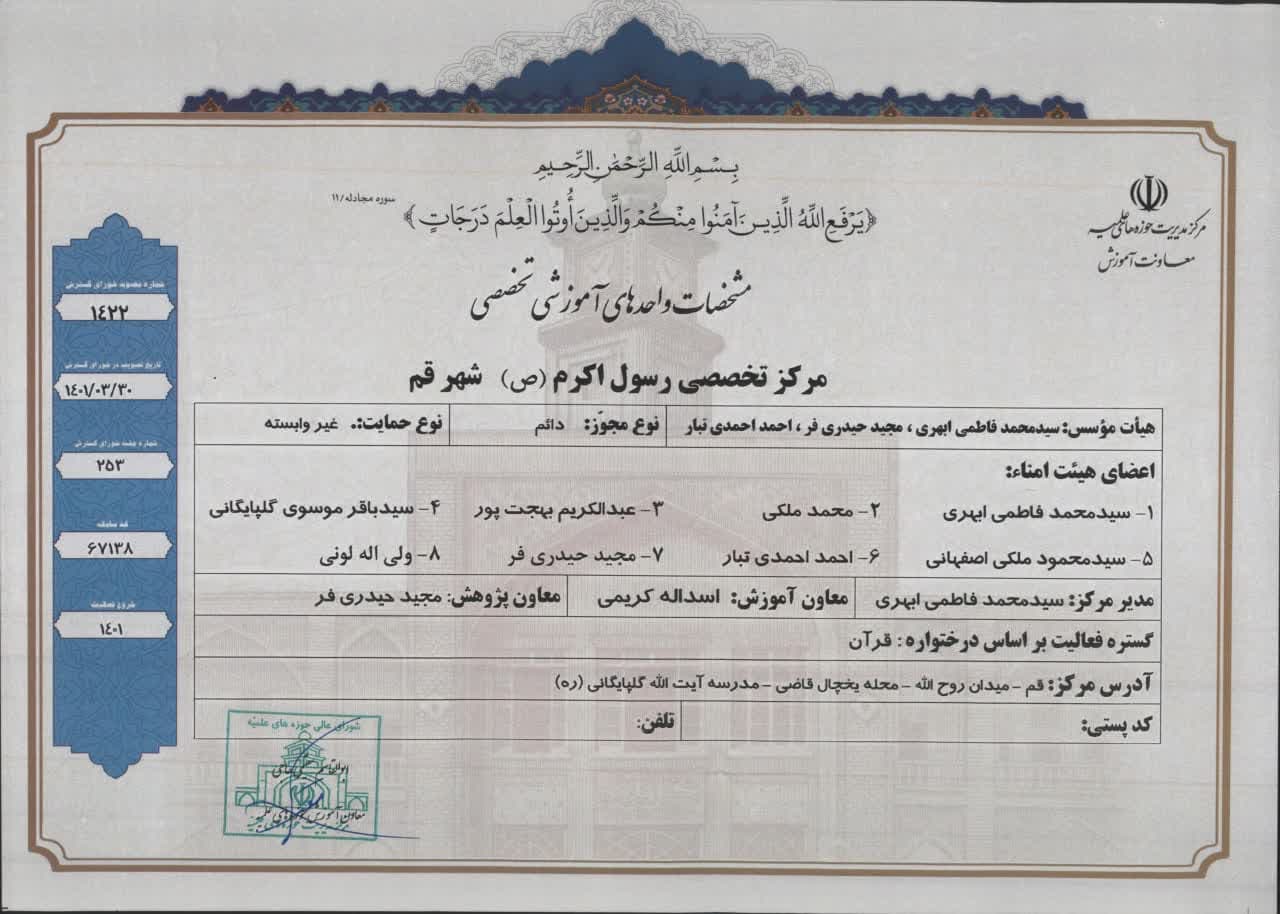 بِسْمِ اللَّهِ الرَّحْمَٰنِ الرَّحِيمِ
﴿يَرْفَعِ اللَّهُ الَّذِينَ آمَنُوا مِنْكُمْ وَالَّذِينَ أُوتُوا الْعِلْمَ دَرَجَاتٍ﴾ سوره مجادله/۱۱
مرکز مدیریت حوزه های علمیه
معاونت آموزش
مشخصات واحدهای آموزشی تخصصی
مرکز تخصصی رسول اکرم (ص) شهر قم
هیأت مؤسس: سیدمحمد فاطمی ابهری ، مجید حیدری فر ، احمد احمدی تبار
نوع مجوّز: دائم
نوع حمایت:. غیر وابسته
اعضای هیئت امناء:
۱- سیدمحمد فاطمی ابهری ۲- محمد ملکی ۳- عبدالکریم بهجت پور ۴- سیدباقر موسوی گلپایگانی
۵- سیدمحمود ملکی اصفهانی ۶- احمد احمدی تبار ۷- مجید حیدری فر ۸- ولی اله لونی
مدیر مرکز: سیدمحمد فاطمی ابهری
معاون آموزش: اسداله کریمی
معاون پژوهش: مجید حیدری فر
گستره فعالیت بر اساس درختواره : قرآن
آدرس مرکز: قم - میدان روح الله - محله یخچال قاضی - مدرسه آیت الله گلپایگانی (ره)
کد پستی:
تلفن:
شماره مصوبه شورای گسترش
۱۴۲۲
تاریخ تصویب در شورای گسترش
۱۴۰۱/۰۳/۳۰
شماره جلسه شورای گسترش
۲۵۳
کد سامانه
۶۷۱۳۸
شروع فعالیت
۱۴۰۱
شورای عالی حوزه های علمیّه
معاون آموزش حوزه های علمیه